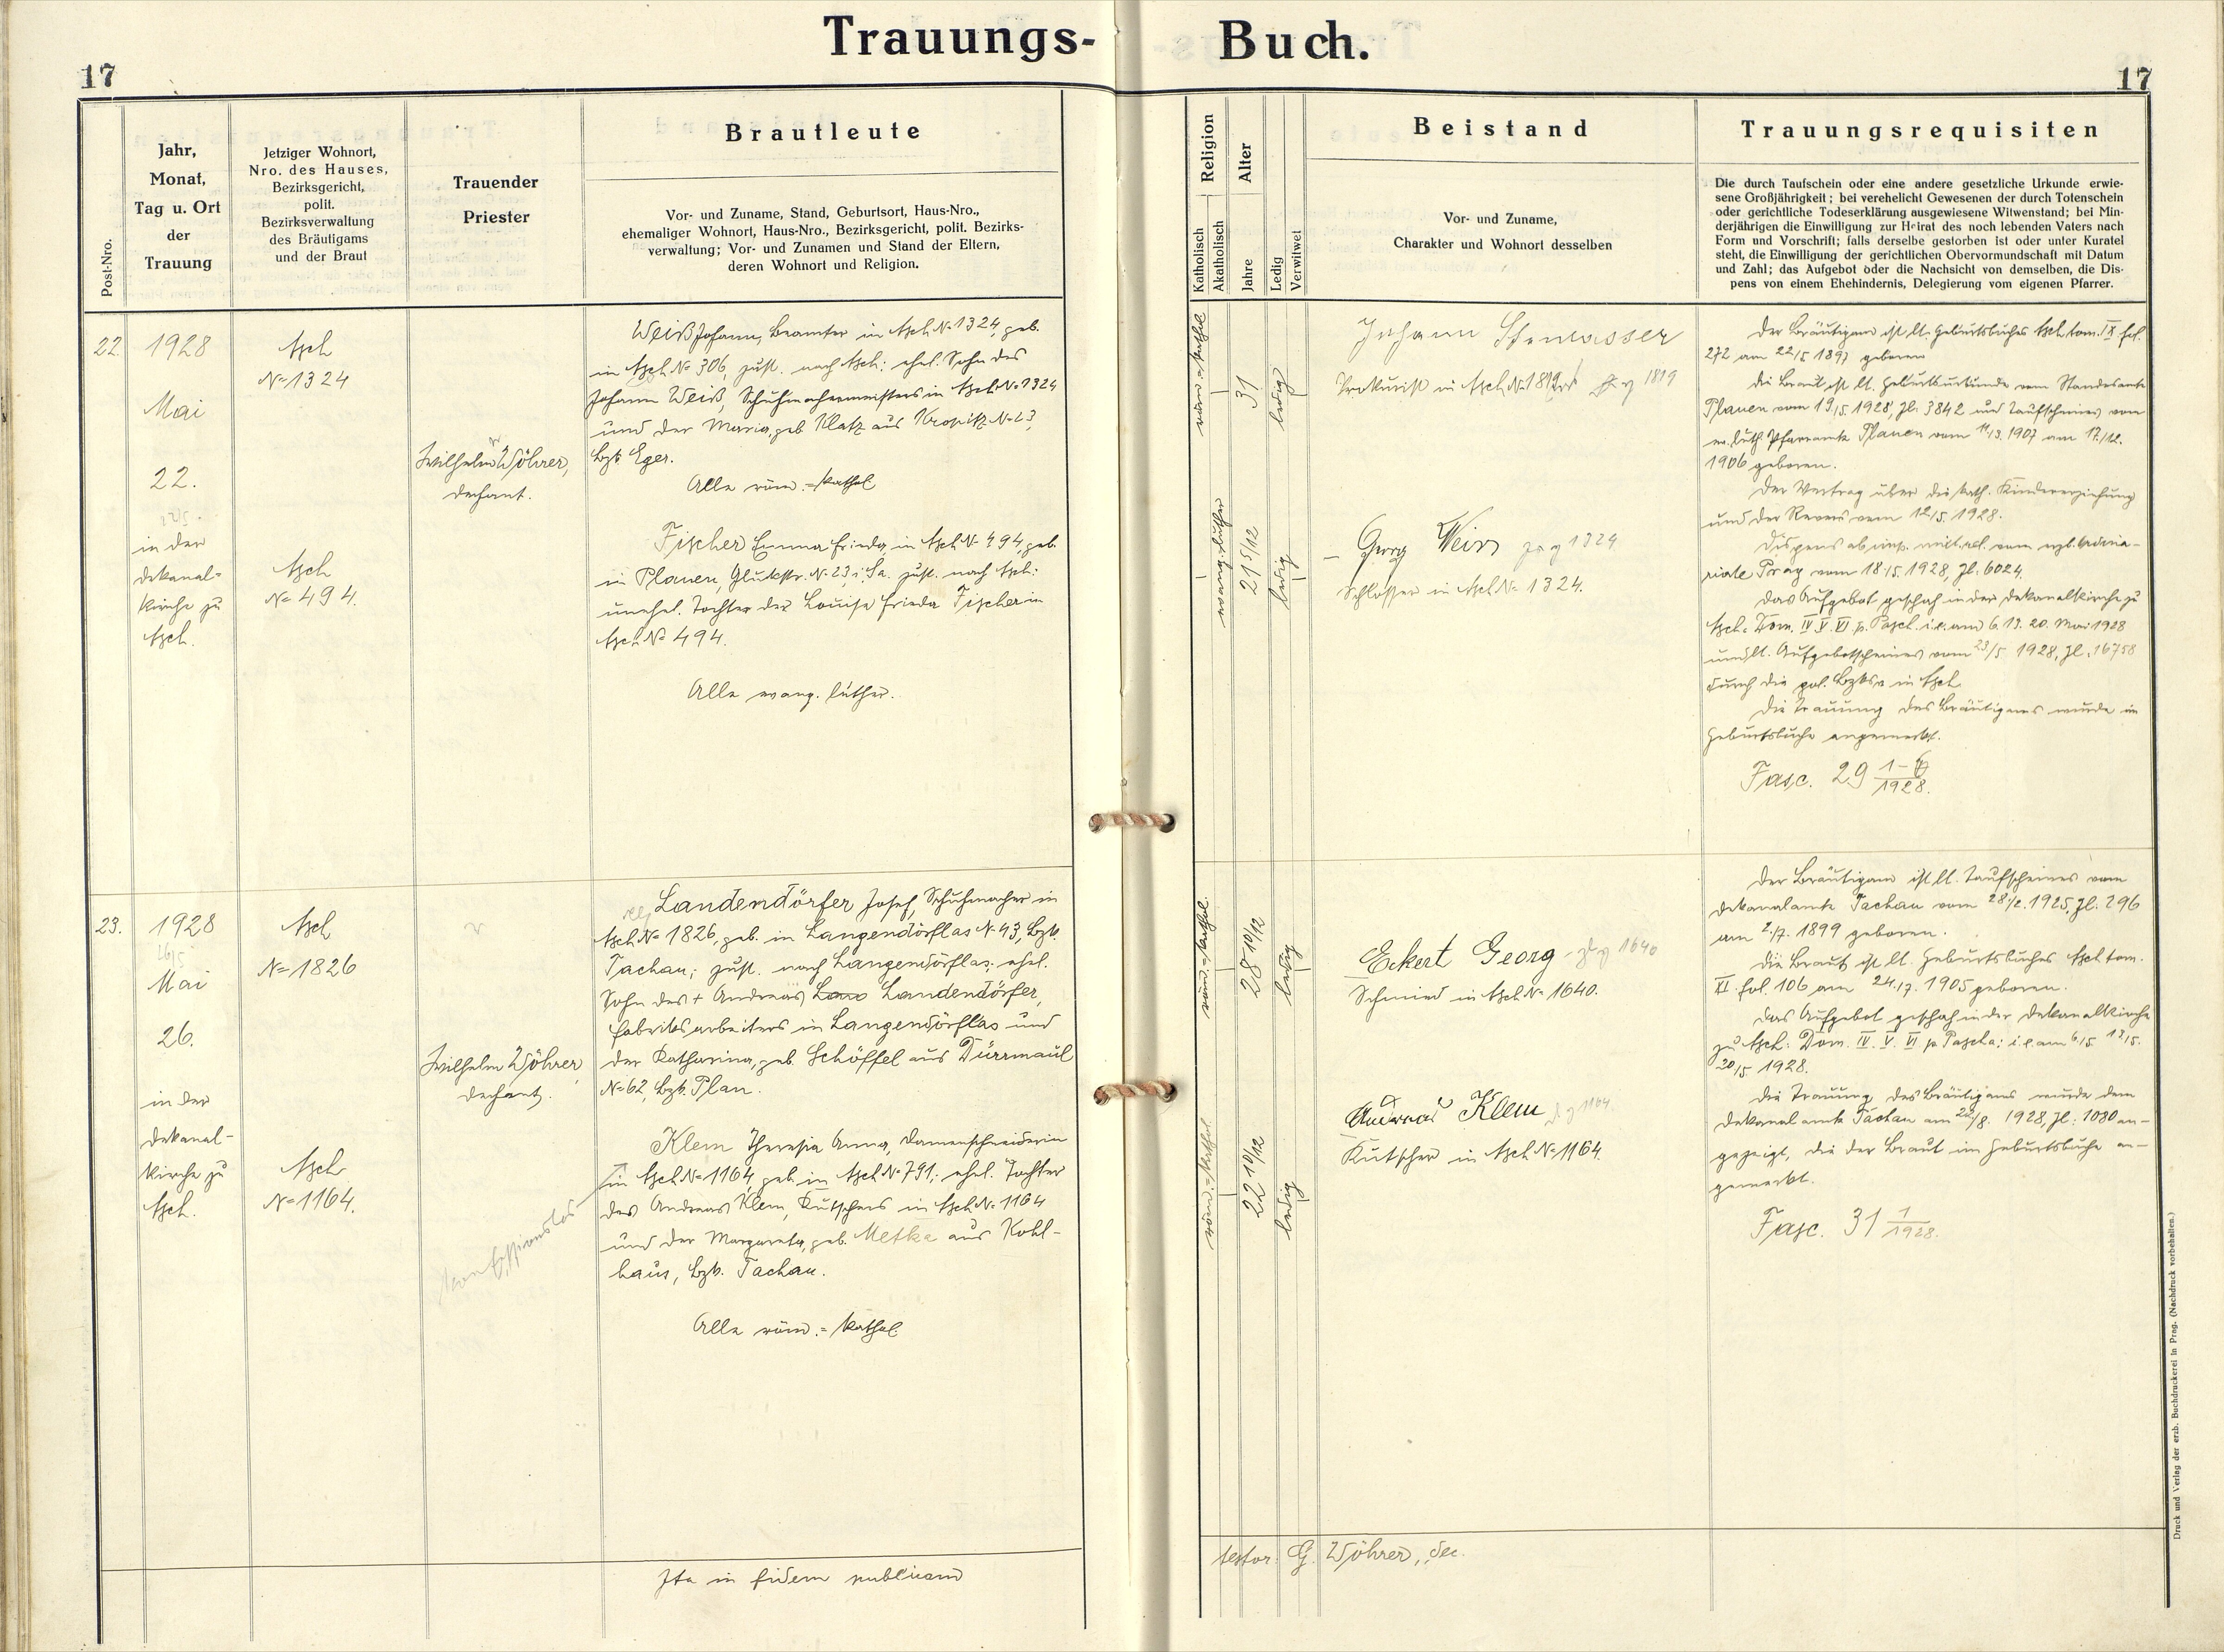 Trauungs-Buch.
17
17
Post-Nro.
Jahr,
Monat,
Tag u. Ort
der
Trauung
Jetziger Wohnort,
Nro. des Hauses,
Bezirksgericht,
polit.
Bezirksverwaltung
des Bräutigams
und der Braut
Trauender
Priester
Brautleute
Vor- und Zuname, Stand, Geburtsort, Haus-Nro.,
ehemaliger Wohnort, Haus-Nro., Bezirksgericht, polit. Bezirks-
verwaltung; Vor- und Zunamen und Stand der Eltern,
deren Wohnort und Religion.
Religion
Katholisch
Akatholisch
Alter
Jahre
Ledig
Verwitwet
Beistand
Vor- und Zuname,
Charakter und Wohnort desselben
Trauungsrequisiten
Die durch Taufschein oder eine andere gesetzliche Urkunde erwie-
sene Großjährigkeit; bei verehelicht Gewesenen der durch Totenschein
oder gerichtliche Todeserklärung ausgewiesene Witwenstand; bei Min-
derjährigen die Einwilligung zur Heirat des noch lebenden Vaters nach
Form und Vorschrift; falls derselbe gestorben ist oder unter Kuratel
steht, die Einwilligung der gerichtlichen Obervormundschaft mit Datum
und Zahl; das Aufgebot oder die Nachsicht von demselben, die Dis-
pens von einem Ehehindernis, Delegierung vom eigenen Pfarrer.
22.
1928
Mai
22.
in der
Dekanal-
kirche zu
Asch.
Asch
N= 1324
Asch
N= 494.
Wilhelm Wöhrer,
Dechant.
Weiß Johann, Beamter in Asch N= 1324, geb.
in Asch N= 306, zust. nach Asch: ehel. Sohn des
Johann Weiß, Schuhmachermeisters in Asch N= 1324
und der Maria, geb. Klatz aus Kropitz N= 23,
Bzk. Eger.
Alle röm.=kathol
Fischer Emma Frieda, in Asch N= 494, geb.
in Plauen, Gluckstr. N= 23, i. Sa. zust. nach Asch:
unehel. Tochter der Louise Frieda Fischer in
Asch N= 494.
Alle evang. luther.
röm.=kathol
31
ledig
evang. luther
21 5/12
ledig
Johann
Prokurist in Asch N= 1819
1819
Georg Weiss 1324
Schlosser in Asch N= 1324.
Der Bräutigam ist lt. Geburtsbuches Asch tom. IX fol.
272 am 22/5 1897 geboren
Die Braut ist lt. Geburtsurkunde vom Standesamte
Plauen vom 19./5. 1928, Zl: 3842 und Taufscheines vom
ev. luth. Pfarramte Plauen vom 11/3. 1907 am 17./12.
1906 geboren.
Der Vertrag über die kath. Kindererziehung
und der Revers vom 12/5. 1928.
Dispens ab imp. mixt. rel. vom
Prag vom 18./5. 1928, Zl: 6024.
Das Aufgebot geschah in der Dekanalkirche zu
Asch: Dom. IV. V. VI. p. Pasch. i. e. am 6. 13. 20. Mai 1928
und lt. Aufgebotscheines vom 23/5 1928, Zl: 16758
durch die pol. Bzksv in Asch
Die Trauung des Bräutigams wurde im
Geburtsbuche angemerkt.
Fasc. 29 1-6/1928.
23.
1928
26/5
Mai
26.
in der
Dekanal-
kirche zu
Asch.
Asch
N= 1826
Asch
N= 1164.
Wilhelm Wöhrer,
Dechant.
konfessionslos
Landendörfer Josef, Schuhmacher in
Asch N= 1826, geb. in Langendörflas N= 43, Bzk.
Tachau; zust. nach Langendörflas: ehel.
Sohn des + Andreas Landendörfer,
Fabriksarbeiters in Langendörflas und
der Katharina, geb. Schöffel aus Dürrmaul
N= 62, Bzk. Plan.
Klem Theresia Anna, Damenschneiderin
in Asch N= 1164, geb. in Asch N= 791: ehel. Tochter
des Andreas Klem, Kutschers in Asch N= 1164
und der Margareta, geb. Metka aus Kohl-
haus, Bzk. Tachau.
Alle röm.=kathol
röm.=kathol.
28 10/12
ledig
röm.=kathol
22 10/12
ledig
Eckert Georg 1640
Schmied in Asch N= 1640.
Andreas Klem 1164
Kutscher in Asch N= 1164
Der Bräutigam ist lt. Taufscheines vom
Dekanalamte Tachau vom 28./2. 1925, Zl: 296
am 2./7. 1899 geboren.
Die Braut ist lt. Geburtsbuches Asch tom.
XI. fol. 106 am 24./7. 1905 geboren.
Das Aufgebot geschah in der Dekanalkirche
zu Asch: Dom. IV. V. VI p Pascha: i. e. am 6./5. 13/5.
20/5. 1928.
Die Trauung des Bräutigams wurde dem
Dekanalamte Tachau am 22/8. 1928, Zl: 1080 an-
gezeigt, die der Braut im Geburtsbuche an-
gemerkt.
Fasc. 31 1/1928.
Ita in fidem publicam
testor: G. Wöhrer, dec.
Druck und Verlag der erzb. Buchdruckerei in Prag. (Nachdruck vorbehalten.)